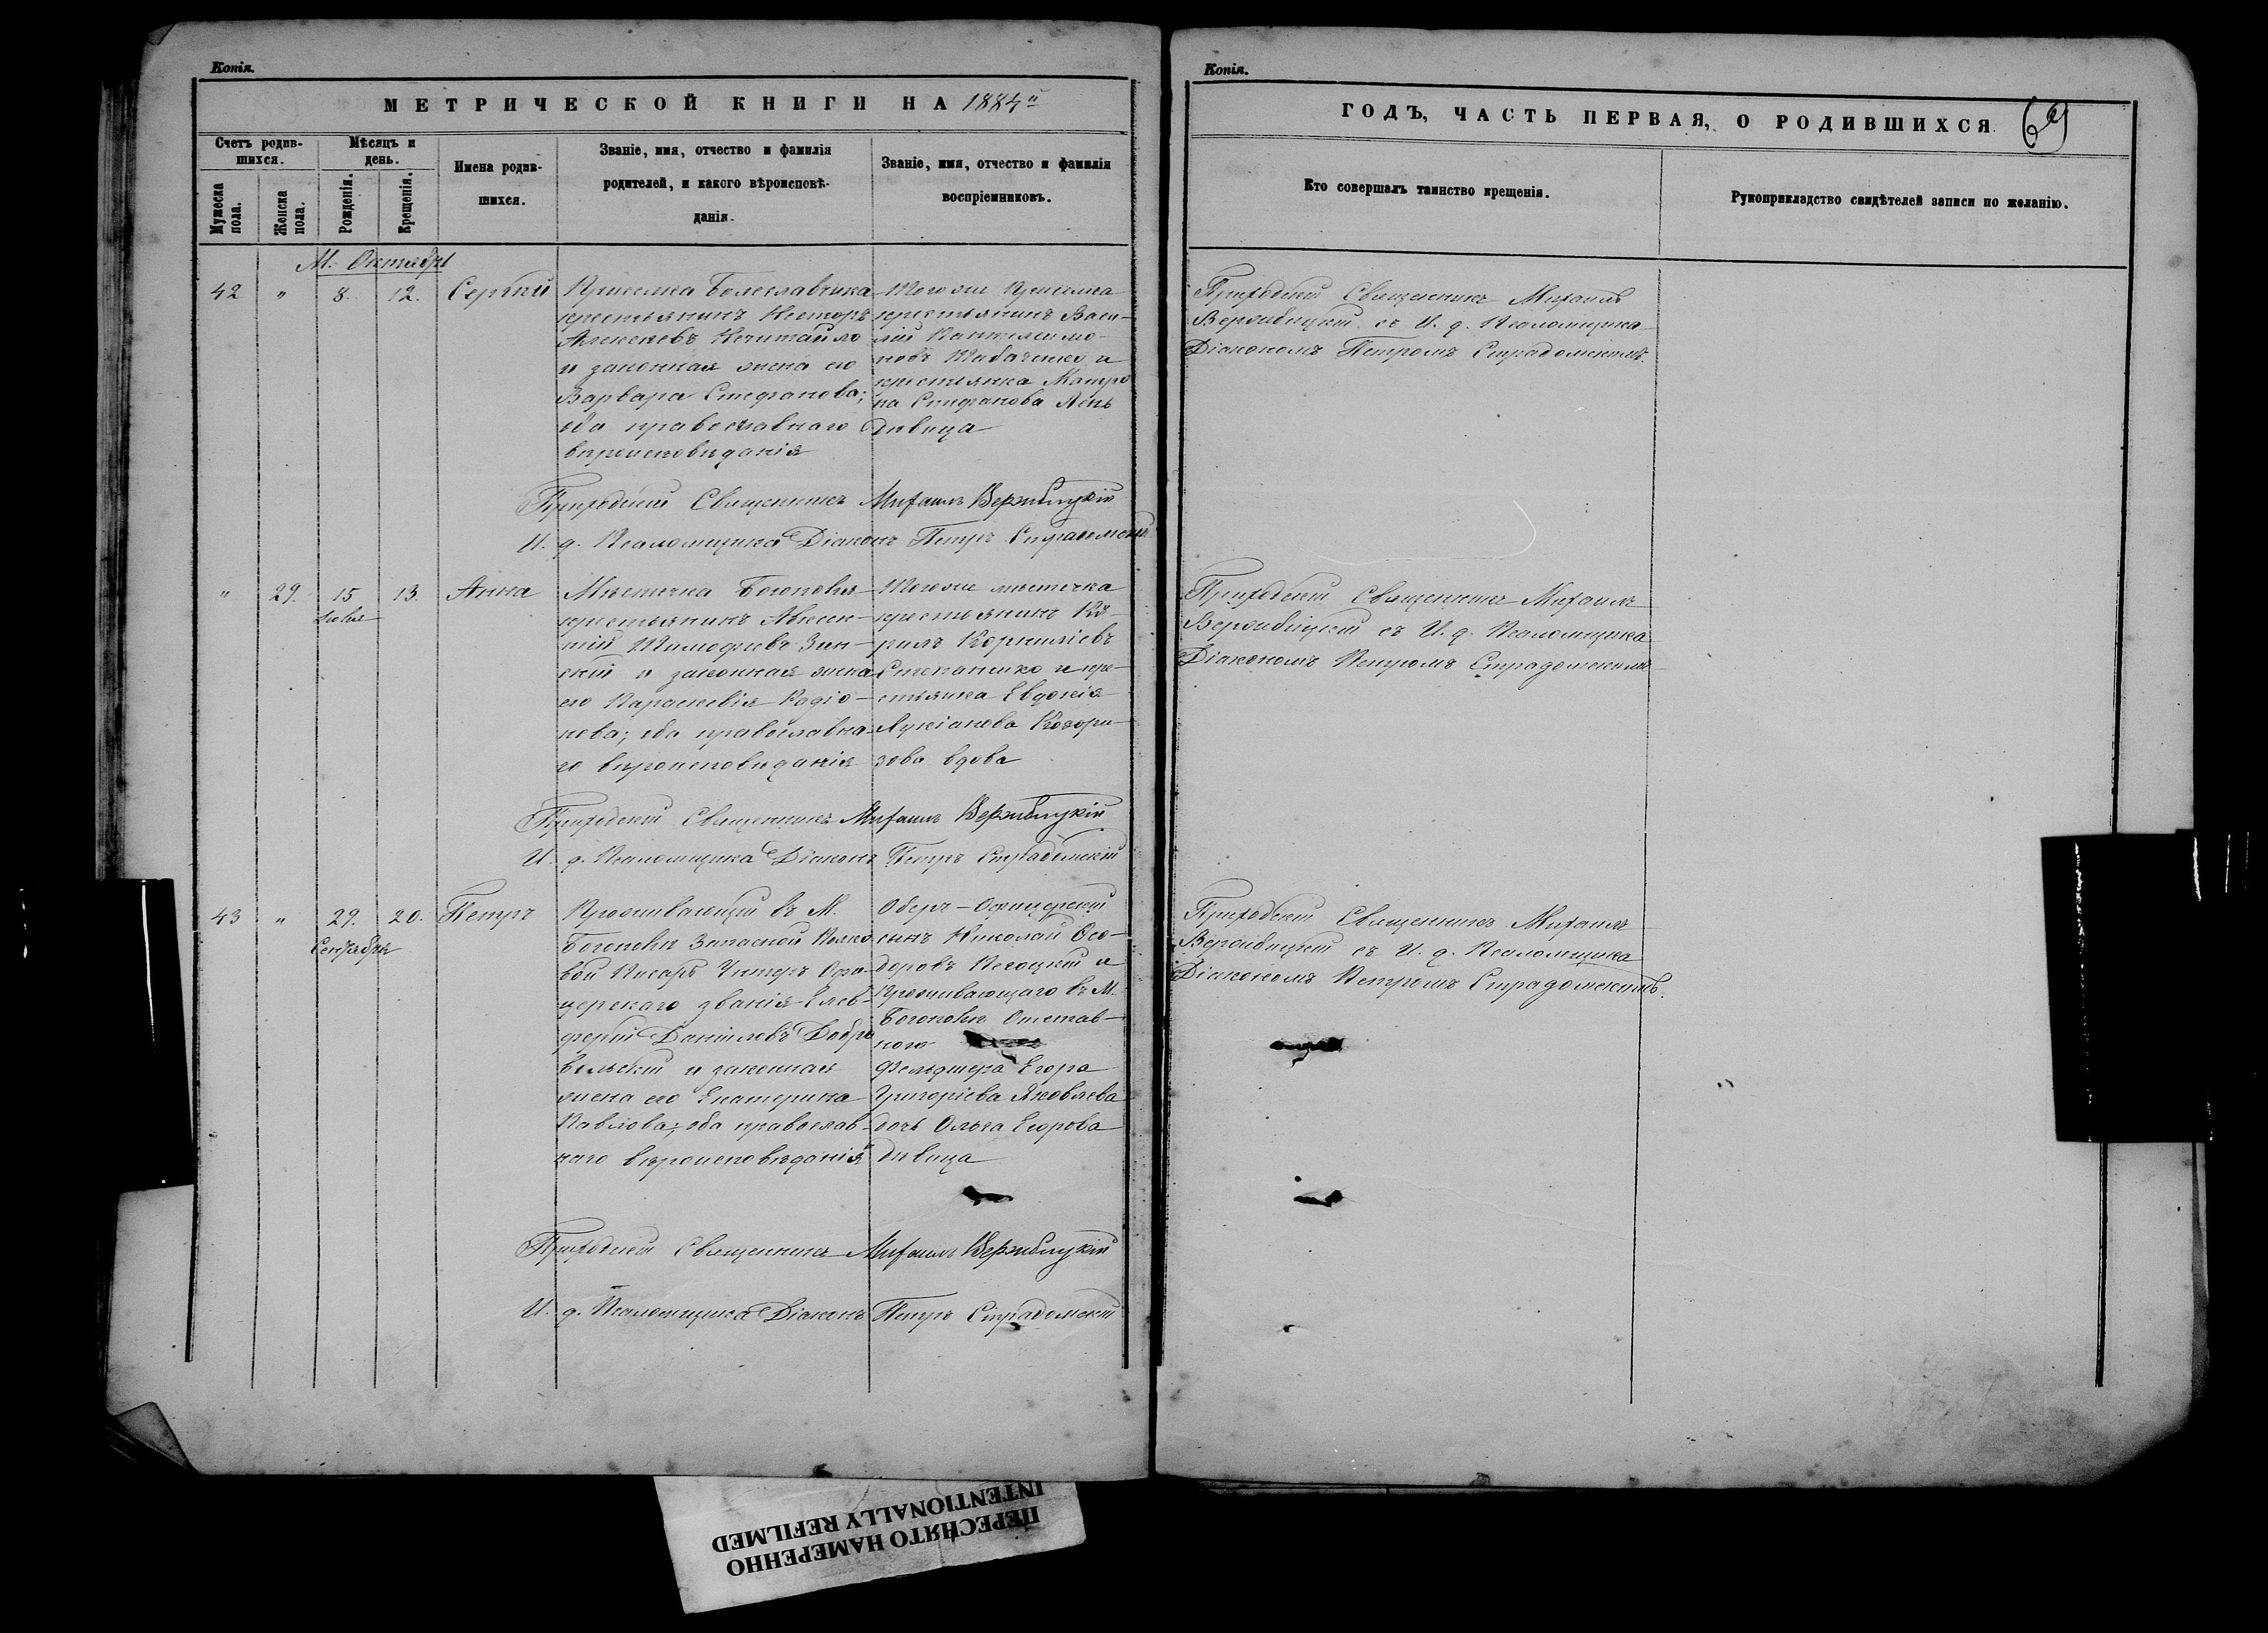 Копія.
МЕТРИЧЕСКОЙ КНИГИ НА 1884й
Счетъ родив-
шихся.
Мѣсяцъ и
день.
Имена родив-
шихся.
Званіе, имя, отчество и фамилія
родителей, и какого вѣроисповѣ-
данія.
Званіе, имя, отчество и фамилія
воспріемниковъ.
Мужеска
пола.
Женска
пола.
Рожденія.
Крещенія.
М. Октябрь
42 " 8. 12. Сергій
крестьянинъ Несторъ
Алексѣевъ Нечитайло
и законная жена его
Варвара Стефанова;
оба православнаго
вѣроисповѣданія
крестьянинъ Васи-
лій Пантелеимо-
новъ и
крестьянка Матро
на Стефанова
дѣвица
Приходскій Священникъ Михаилъ Вержбицкій
И. д. Псаломщика Діаконъ Петръ Страдомскій
" 29. 15 13. Анна
Іюля
Мѣстечка Богополя
крестьянинъ Авксен-
тій Тимофеевъ Зин-
скій и законная жена
его Параскевія Родіо-
нова; оба православна-
го вѣроисповѣданія
Тогоже мѣстечка
крестьянинъ Ки-
рилъ Корниліевъ
Степаненко и кре-
стьянка Евдокія
Лукіанова
вдова
Приходскій Священникъ Михаилъ Вержбицкій
И. д. Псаломщика Діаконъ Петръ Страдомскій
43 " 29. 20. Петръ
Сентября
Проживающій въ М.
Богополѣ Запасной Полко
вой Писарь Унтеръ Офи-
церскаго званія Елев-
ферій Даніиловъ Добро
вольскій и законная
жена его Екатерина
Павлова; оба православ-
наго вѣроисповѣданія
Оберъ-Офицерскій
сынъ Николай Ѳео-
доровъ и
Проживающаго въ М.
Богополѣ Отстав-
ного
Фельдшера Егора
Григоріева Яковлева
дочь Ольга Егорова
дѣвица
Приходскій Священникъ Михаилъ Вержбицкій
И. д. Псаломщика Діаконъ Петръ Страдомскій
Копія.
ГОДЪ, ЧАСТЬ ПЕРВАЯ, О РОДИВШИХСЯ. 69
Кто совершалъ таинство крещенія.
Рукоприкладство свидѣтелей записи по желанію.
Приходскій Священникъ Михаилъ
Вержбицкій съ И. д. Псаломщика
Діакономъ Петромъ Страдомскимъ.
Приходскій Священникъ Михаилъ
Вержбицкій съ И. д. Псаломщика
Діакономъ Петромъ Страдомскимъ
Приходскій Священникъ Михаилъ
Вержбицкій съ И. д. Псаломщика
Діакономъ Петромъ Страдомскимъ.
ПЕРЕСНЯТО НАМЕРЕННО
INTENTIONALLY REFILMED